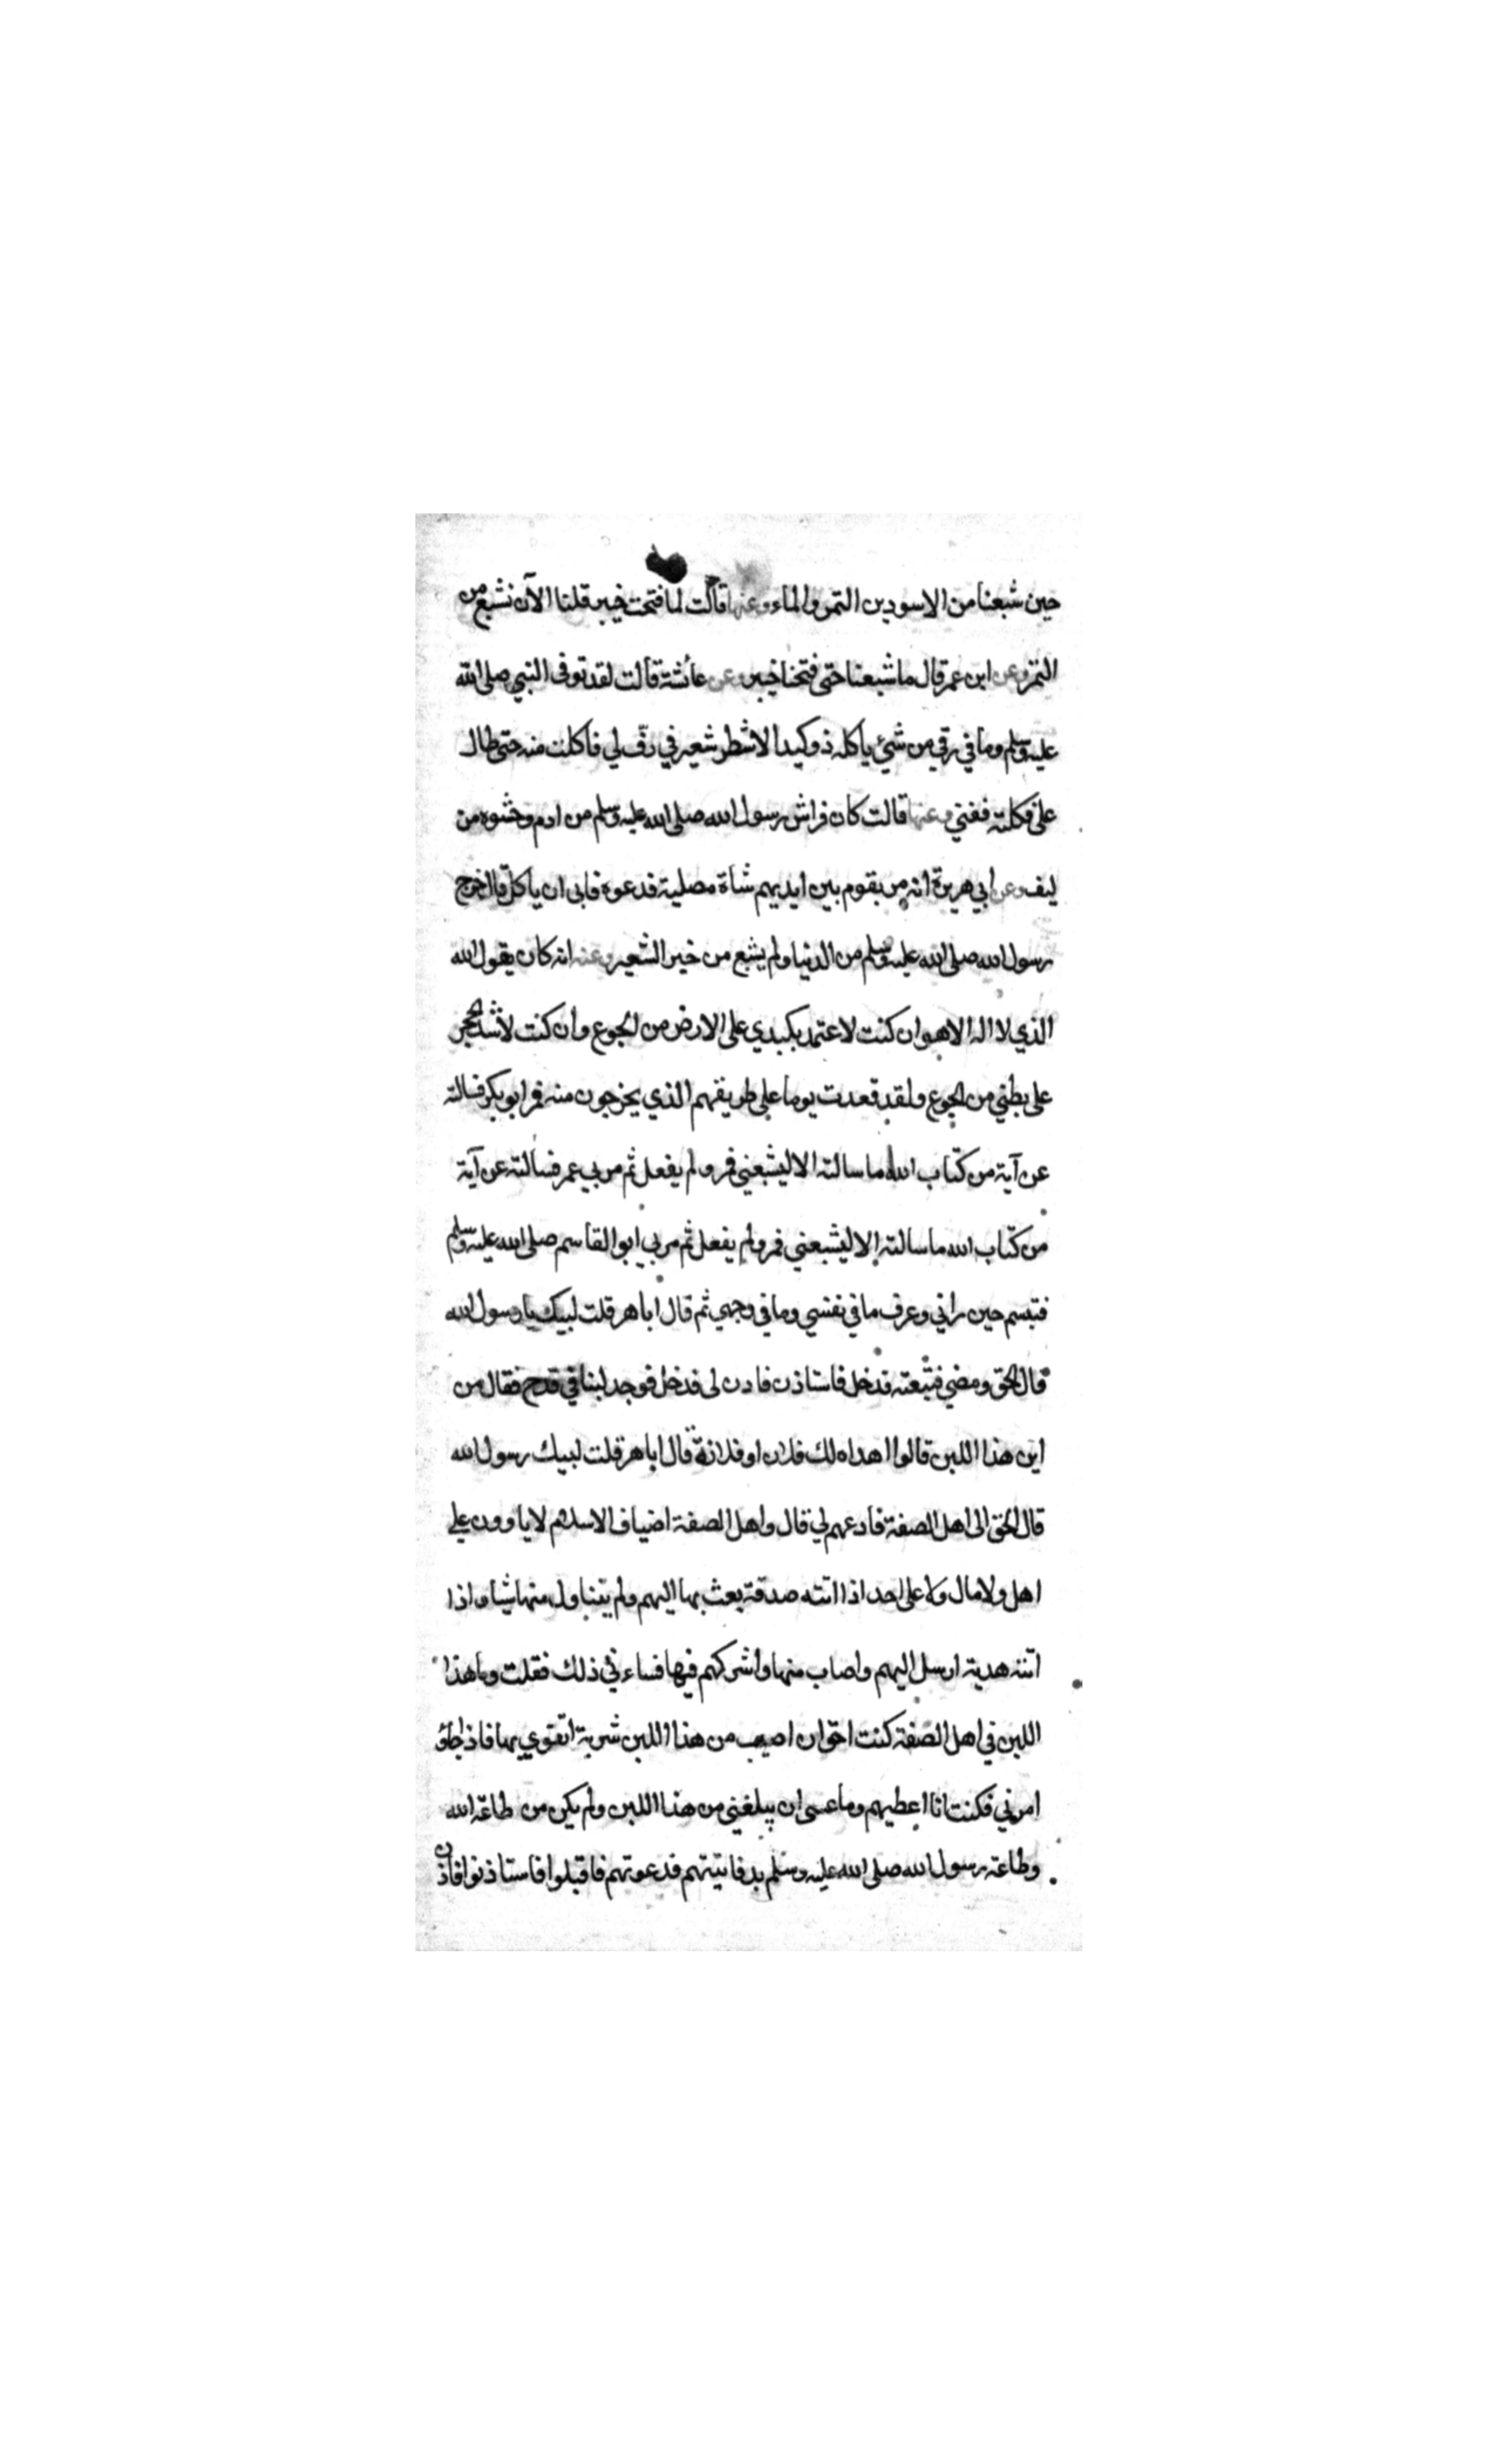 حين شبعنا من الاسودين التمر والماء وعنها قالت لما فتحت خيبر قلنا الآن نشبع من
التمر وعن ابن عمر قال ما شبعنا حتى فتحنا خيبر وعن عائشة قالت لقد توفى النبي صلى الله
عليه وسلم وما في رقي من شئ ياكله ذو كبد الا شطر شعير في رفّ لي فاكلت منه حتى طال
على فكلته ففني وعنها قالت كان فراش رسول الله صلى الله عليه وسلم من ادم وحشوه من
ليف وعن ابي هريرة انه مر بقوم بين ايديهم شاة مصلية فدعوه فابى ان ياكل قال خرج
رسول الله صلى الله عليه وسلم من الدنيا ولم يشبع من خبز الشعير وعنه انه كان يقول الله
الذي لا اله الا هو ان كنت لاعتمد بكبدي على الارض من الجوع وان كنت لاشد الحجر
على بطني من الجوع ولقد قعدت يوما على طريقهم الذي يخرجون منه فمر ابو بكر فسالته
عن آية من كتاب الله ما سالته الا ليشبعني فمر ولم يفعل ثم مر بي عمر فسالته عن آية
من كتاب الله ما سالته الا ليشبعني فمر ولم يفعل ثم مر بي ابو القاسم صلى الله عليه وسلم
فتبسم حين راني وعرف ما في نفسي وما في وجهي ثم قال ابا هر قلت لبيك يا رسول الله
قال الحق ومضي فتبعته فدخل فاستاذن فاذن لى فدخل فوجد لبنا في قدح فقال من
اين هذا اللبن قالوا اهداه لك فلان او فلانة قال ابا هر قلت لبيك رسول الله
قال الحق الى اهل الصفة فادعهم لي قال واهل الصفة اضياف الاسلام لا ياوون على
اهل ولا مال ولا على احد اذا اتته صدقة بعث بها اليهم ولم يتناول منها شيا واذا
اتته هدية ارسل اليهم واصاب منها واشركهم فيها فساءني ذلك فقلت وما هذا
اللبن في اهل الصفة كنت احق ان اصيب من هذا اللبن شربة اتقوي بها فاذا جاؤ
امرني فكنت انا اعطيهم وما عسى ان يبلغني من هذا اللبن ولم يكن من طاعة الله
وطاعة رسول الله صلى الله عليه وسلم بد فاتيتهم فدعوتهم فاقبلوا فاستاذنوا فاذن